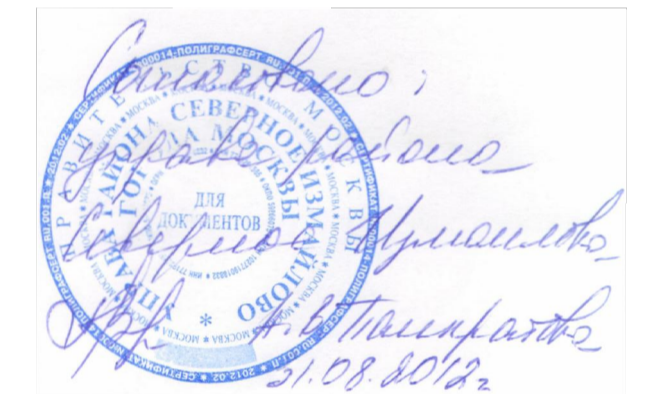 Согласовано:
управа района
Северное Измайлово
А.В. Панкратова
31.08.2012г
ПРАВИТЕЛЬСТВО МОСКВЫ
УПРАВА РАЙОНА СЕВЕРНОЕ ИЗМАЙЛОВО
ГОРОДА МОСКВЫ
ДЛЯ
ДОКУМЕНТОВ